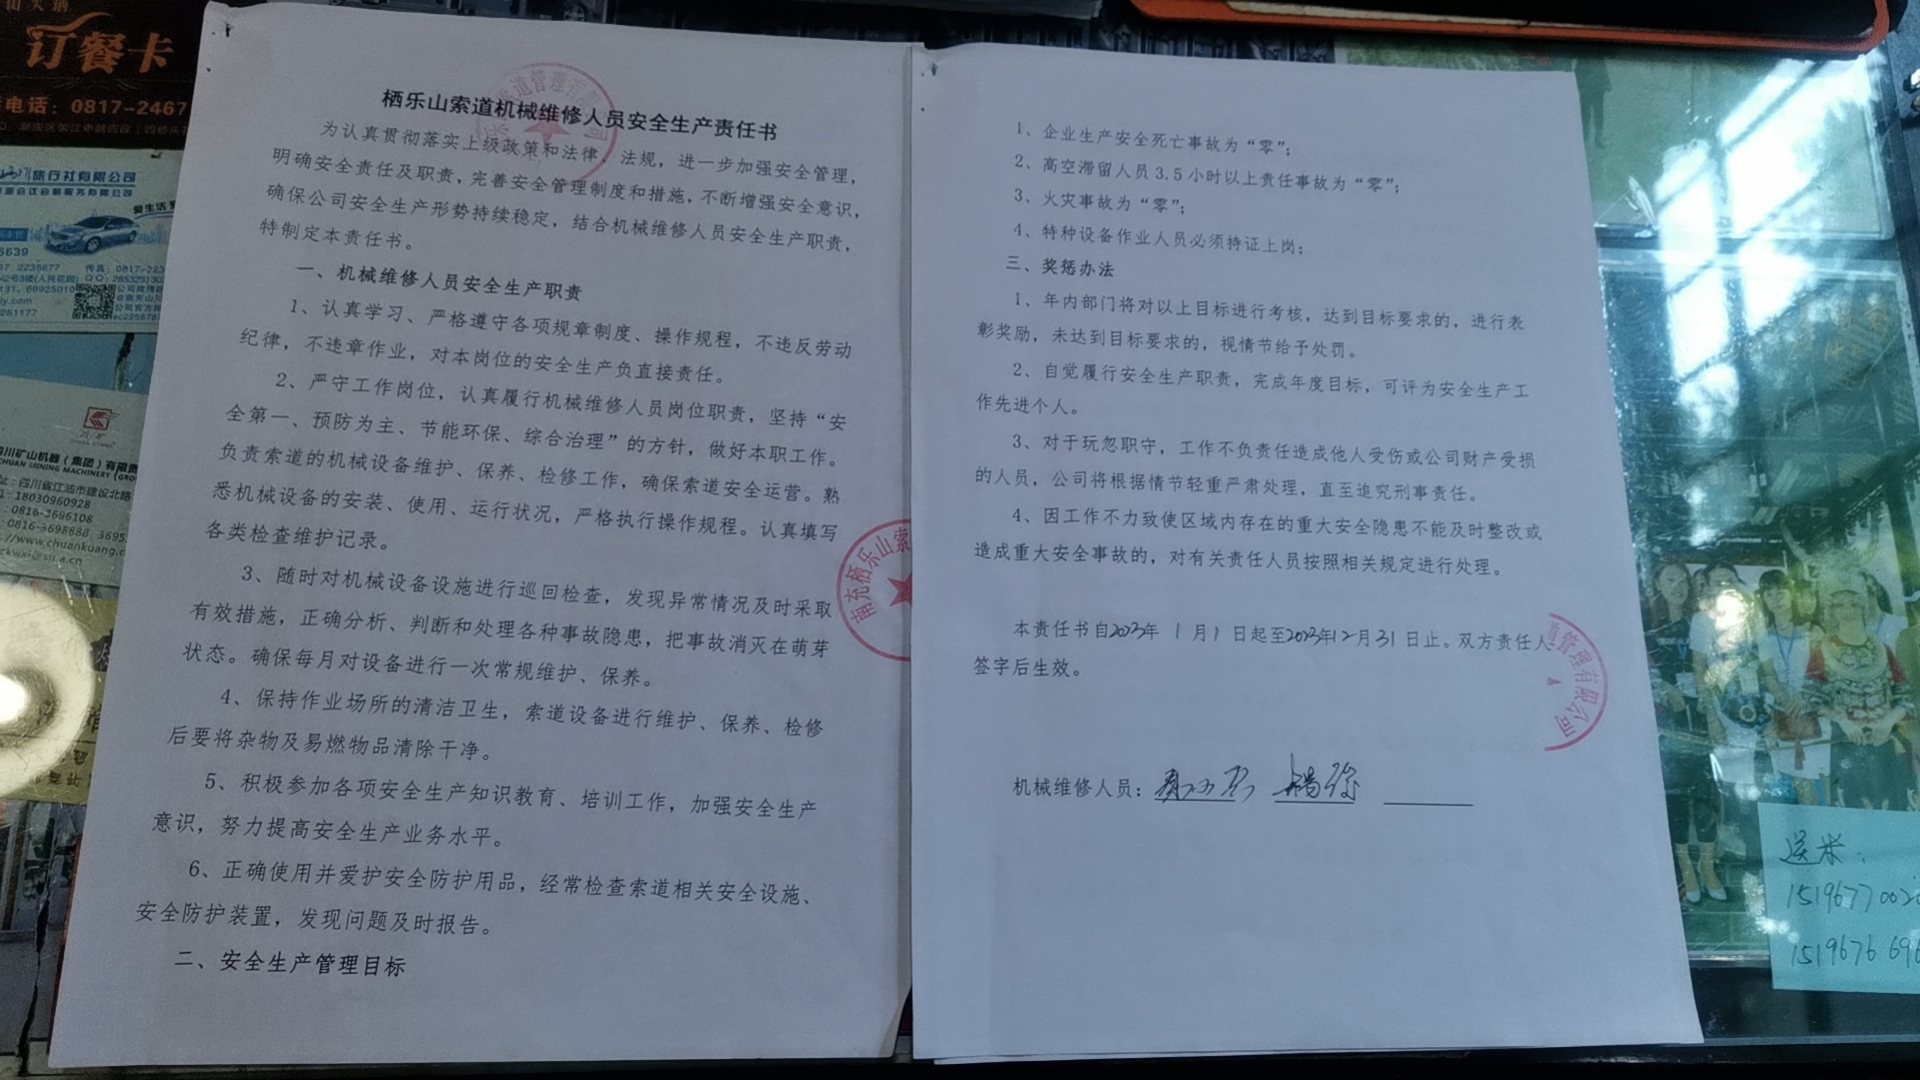 订餐卡
电话：0817-2467
旅行社有限公司
爱生活
四川矿山机器（集团）有限责
CHUAN MINING MACHINERY (GRO
四川省江油市建设北路
18030960928
0816-3696108
0816-3698888 3695
www.chuankuang.c
栖乐山索道机械维修人员安全生产责任书
为认真贯彻落实上级政策和法律、法规，进一步加强安全管理，
明确安全责任及职责，完善安全管理制度和措施，不断增强安全意识，
确保公司安全生产形势持续稳定，结合机械维修人员安全生产职责，
特制定本责任书。
一、机械维修人员安全生产职责
1、认真学习、严格遵守各项规章制度、操作规程，不违反劳动
纪律，不违章作业，对本岗位的安全生产负直接责任。
2、严守工作岗位，认真履行机械维修人员岗位职责，坚持“安
全第一、预防为主、节能环保、综合治理”的方针，做好本职工作。
负责索道的机械设备维护、保养、检修工作，确保索道安全运营。熟
悉机械设备的安装、使用、运行状况，严格执行操作规程。认真填写
各类检查维护记录。
3、随时对机械设备设施进行巡回检查，发现异常情况及时采取
有效措施，正确分析、判断和处理各种事故隐患，把事故消灭在萌芽
状态。确保每月对设备进行一次常规维护、保养。
4、保持作业场所的清洁卫生，索道设备进行维护、保养、检修
后要将杂物及易燃物品清除干净。
5、积极参加各项安全生产知识教育、培训工作，加强安全生产
意识，努力提高安全生产业务水平。
6、正确使用并爱护安全防护用品，经常检查索道相关安全设施、
安全防护装置，发现问题及时报告。
二、安全生产管理目标
南充栖乐山索
1、企业生产安全死亡事故为“零”；
2、高空滞留人员3.5小时以上责任事故为“零”；
3、火灾事故为“零”；
4、特种设备作业人员必须持证上岗；
三、奖惩办法
1、年内部门将对以上目标进行考核，达到目标要求的，进行表
彰奖励，未达到目标要求的，视情节给予处罚。
2、自觉履行安全生产职责，完成年度目标，可评为安全生产工
作先进个人。
3、对于玩忽职守，工作不负责任造成他人受伤或公司财产受损
的人员，公司将根据情节轻重严肃处理，直至追究刑事责任。
4、因工作不力致使区域内存在的重大安全隐患不能及时整改或
造成重大安全事故的，对有关责任人员按照相关规定进行处理。
本责任书自2023年 1月1日起至2023年12月31日止。双方责任人
签字后生效。
管理有限公司
机械维修人员：
送米：
151967700
1519676 69